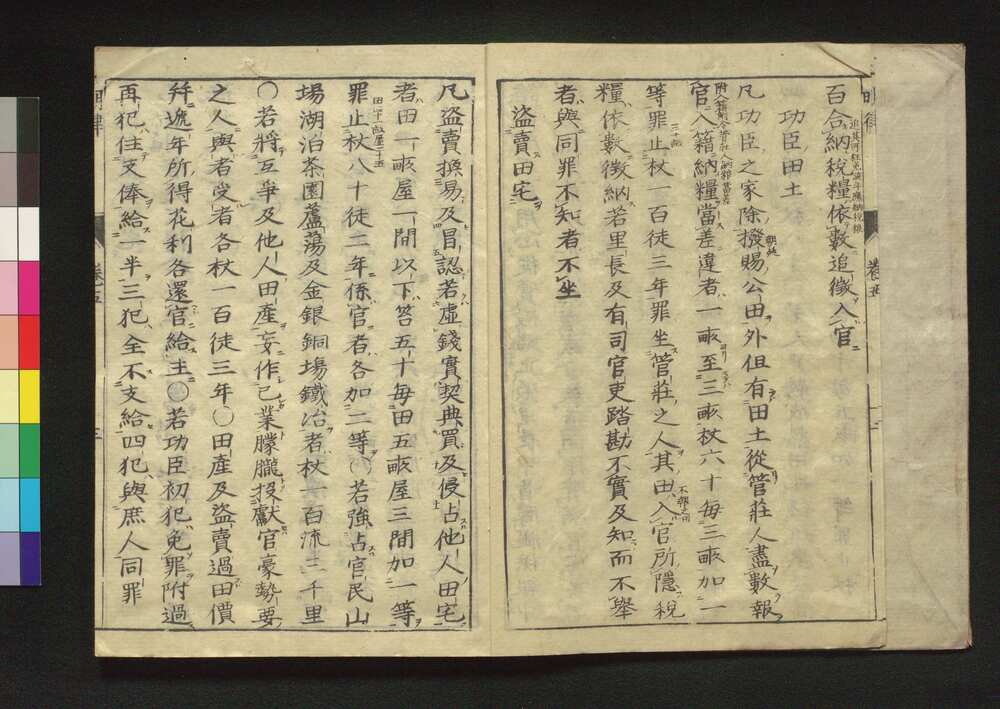 百合納税糧依數追徵入官
功臣田土
凡功臣之家除撥賜公田外但有田土從管莊人盡數報
官入籍納糧當差違者一畝至三畝杖六十每三畝加一
等罪止杖一百徒三年罪坐管莊之人其田入官所隱税
糧依數徵納若里長及有司官吏踏勘不實及知而不舉
者與同罪不知者不坐
盜賣田宅
凡盜賣換易及冒認若虛錢實契典買及侵占他人田宅
者田一畝屋一間以下笞五十每田五畝屋三間加一等
罪止杖八十徒二年係官者各加二等○若強占官民山
場湖泊茶園蘆蕩及金銀銅場鐵冶者杖一百流三千里
○若將互爭及他人田產妄作己業朦朧投獻官豪勢要
之人與者受者各杖一百徒三年○田產及盜賣過田價
并遞年所得花利各還官給主○若功臣初犯免罪附過
再犯住支俸給一半三犯全不支給四犯與庶人同罪
卷五
卷五
三